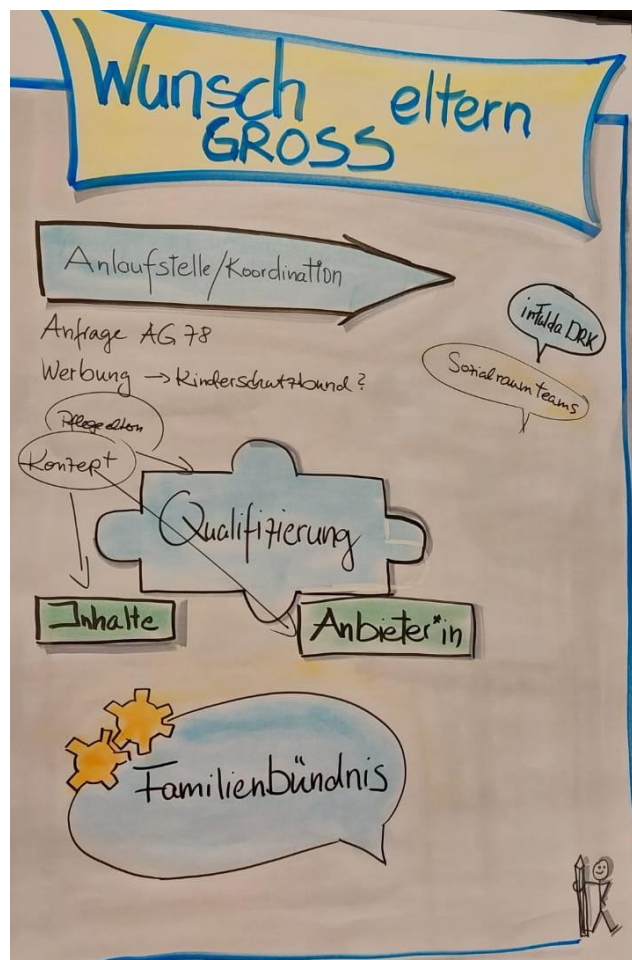 Wunsch eltern
GROSS
Anlaufstelle/Koordination
Anfrage AG 78
Werbung → Kinderschutzbund?
in Fulda DRK
Sozialraumteams
Pflegeeltern
Konzept
Qualifizierung
Inhalte
Anbieter*in
Familienbündnis